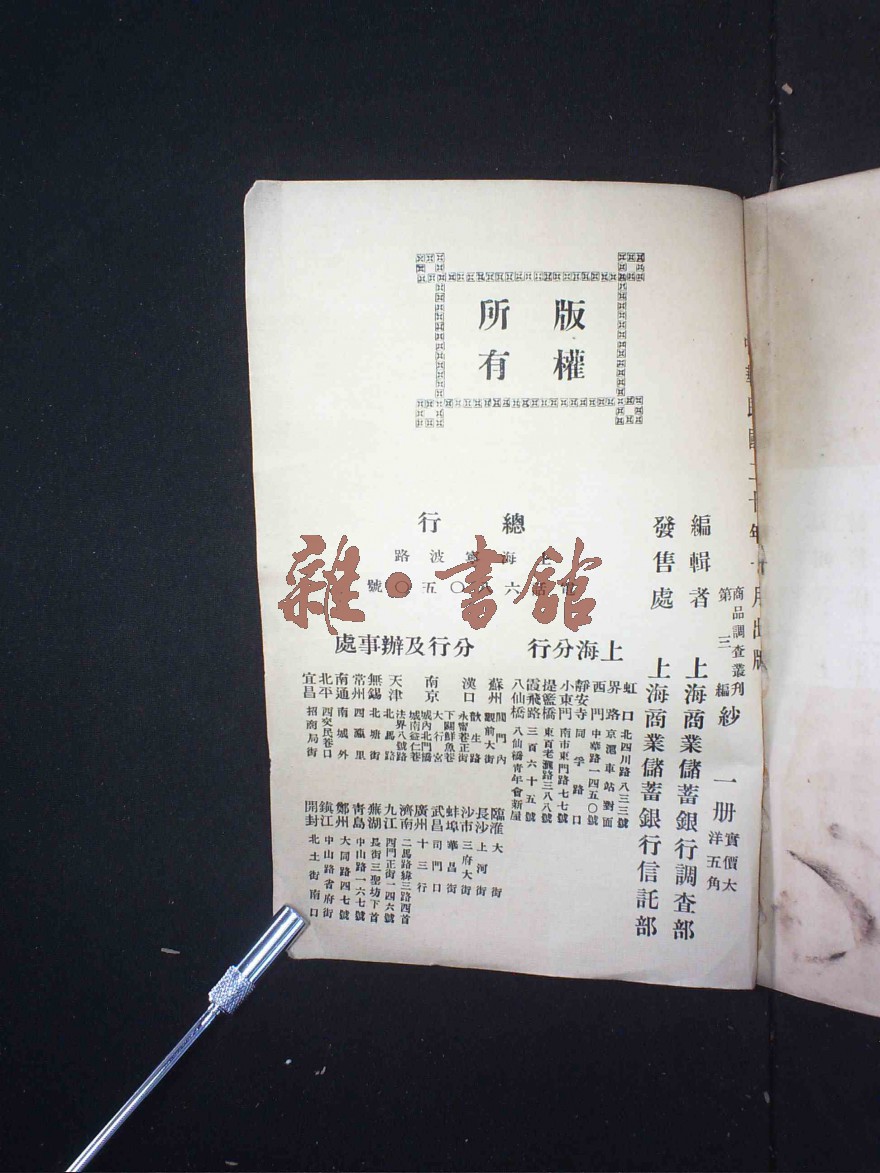 版權
所有
中華民國二十年十月出版
商品調查叢刊
第三編
紗 一册
實價大
洋五角
編輯者 上海商業儲蓄銀行調查部
發售處 上海商業儲蓄銀行信託部
總行
上海寧波路
電話六八〇五〇號
上海分行
虹口 北四川路八三三號
界路 京滬車站對面
西門 中華路一四五〇號
靜安寺 同孚路口
小東門 南市東門路七七號
提籃橋 東百老滙路三八八號
霞飛路 三百六十五號
八仙橋 八仙橋青年會新屋
分行及辦事處
蘇州 閶門內
觀前大街
漢口 歆生路
永甯巷正街
南京 下關鮮魚巷
大行宮
城內北門橋
城南益仁巷
天津 法界八號路
北馬路
無錫 北塘街
常州 西瀛里
南通 南城外
北平 西交民巷口
宜昌 招商局街
臨淮 大街
長沙 上河街
沙市 三府大街
蚌埠 華昌街
武昌 司門口
廣州 十三行
濟南 二馬路緯三路四首
九江 西門正街一四六號
蕪湖 長街三聖坊下首
靑島 中山路一六七號
鄭州 大同路四七號
鎭江 中山路省府街
開封 北土街南口
雜·書館